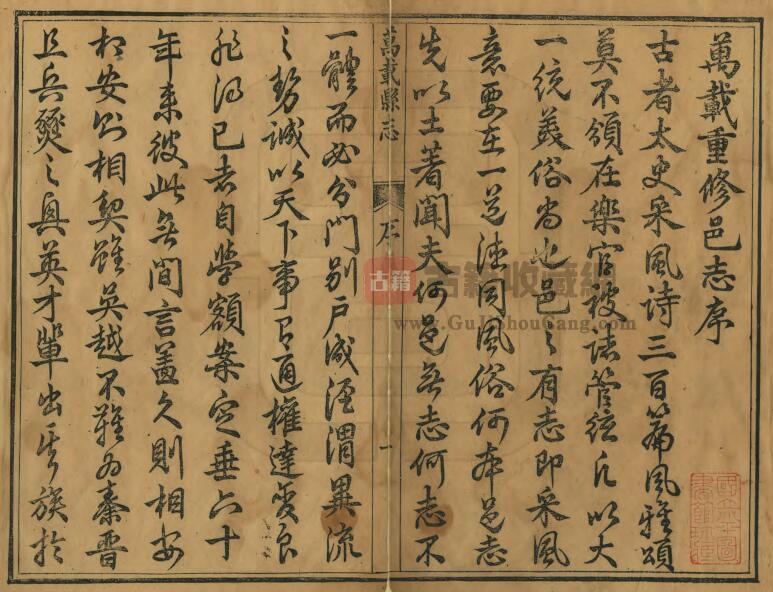 萬載重修邑志序
古者太史采風詩三百篇風雅頌
莫不領在樂官被諸管絃凡以大
一統美俗尚也邑之有志即采風
意要在一道德同風俗何本邑志
先以土著聞夫何邑無志何志不
萬載縣志
序
一
一體而必分門別戶咸涇渭異流
之勢誠以天下事有通權達變良
非得已者自學額案定垂六十
年來彼此無間言蓋久則相安
相安則相契雖吳越不難為秦晉
且兵燹之具英才輩出族於
古籍
古籍收藏網
www.GuJiShouCang.com